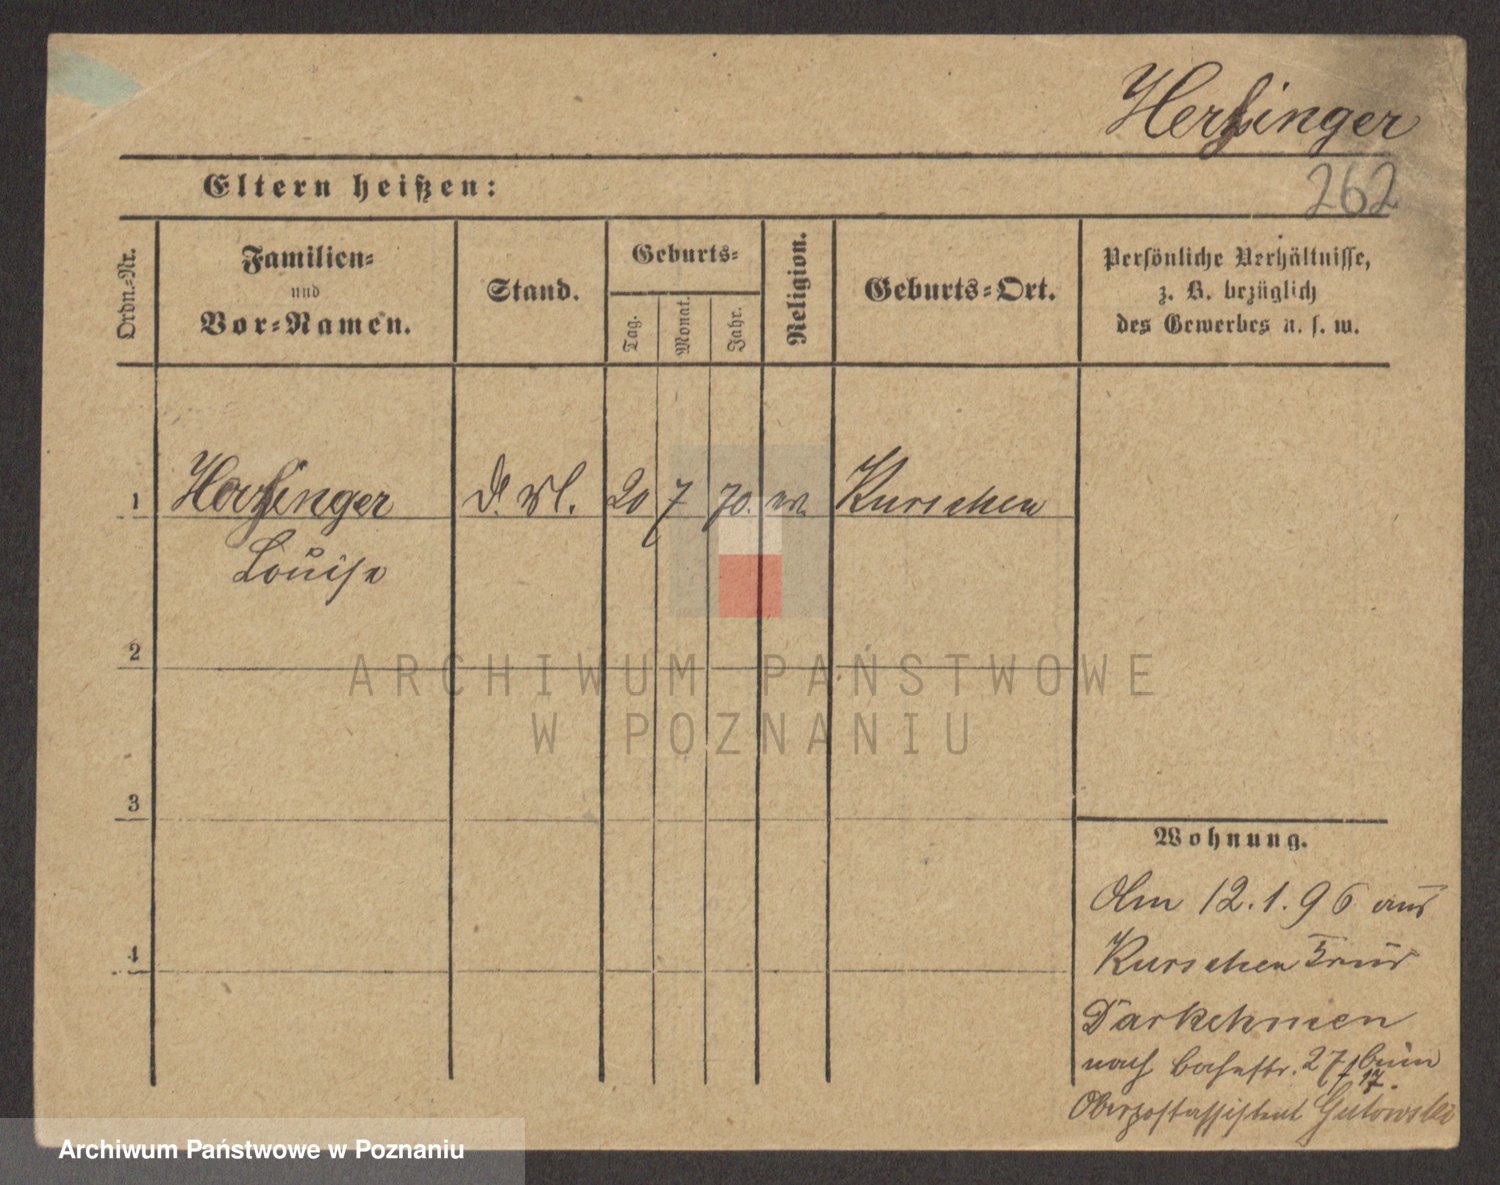 Herhinger
262
Eltern heißen:
Ordn.-Nr.
Familien-
und
Vor-Namen.
Stand.
Geburts-
Tag.
Monat.
Jahr.
Religion.
Geburts-Ort.
Persönliche Verhältnisse,
z. B. bezüglich
des Gewerbes u. s. w.
1
20 7 70. Kurschen
Louise
2
3
4
Wohnung.
Am 12.1.96 aus
Kurschen
Darkehmen
nach 27
17.
Oberpostassistent Gutowski
ARCHIWUM PAŃSTWOWE
W POZNANIU
Archiwum Państwowe w Poznaniu